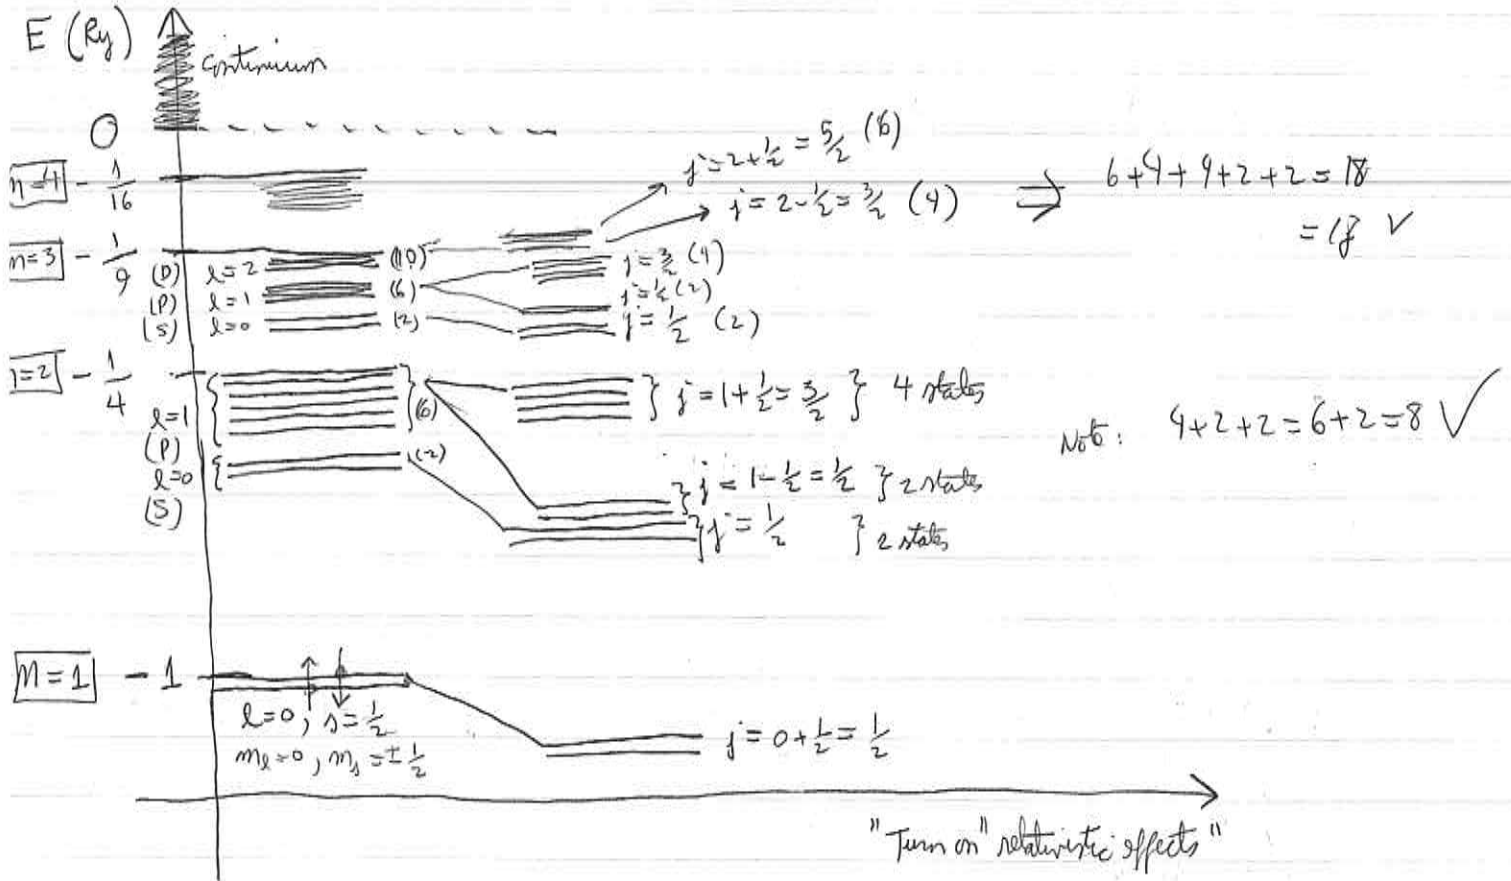 E (Ry)
continuum
0
n=4 - 1/16
j = 2 + 1/2 = 5/2 (6)
j = 2 - 1/2 = 3/2 (4)
⇒ 6+4+4+2+2 = 18
= 18 ✓
n=3 - 1/9
(D) l=2 (10)
(P) l=1 (6)
(S) l=0 (2)
j = 3/2 (4)
j = 1/2 (2)
j = 1/2 (2)
n=2 - 1/4
l=1 (6)
(P)
l=0 (2)
(S)
} j = 1 + 1/2 = 3/2 } 4 states
} j = 1 - 1/2 = 1/2 } 2 states
} j = 1/2 } 2 states
Note: 4+2+2 = 6+2 = 8 ✓
n=1 - 1
l=0, s=1/2
m_l=0, m_s=±1/2
j = 0 + 1/2 = 1/2
"Turn on" relativistic effects"